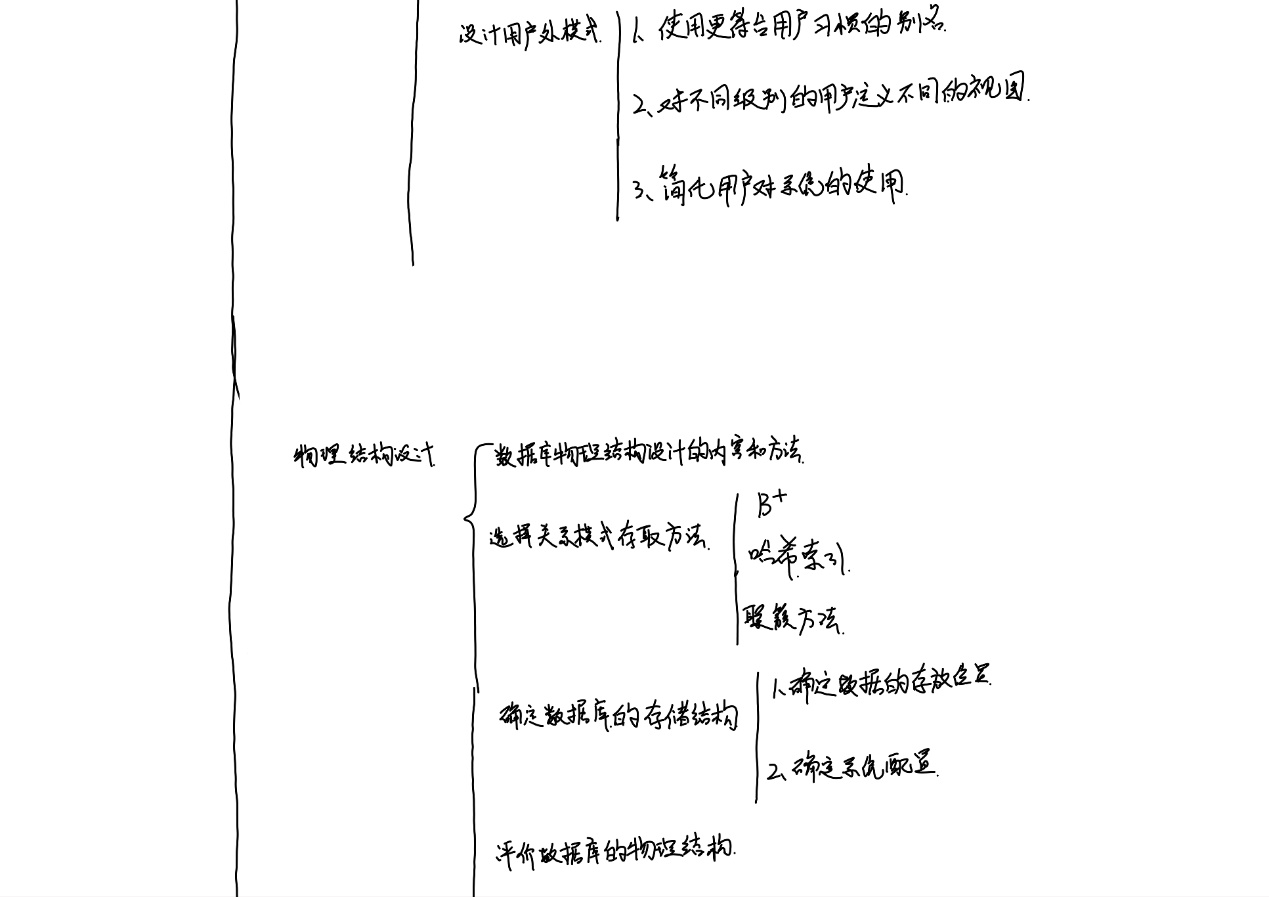 设计用户外模式.
1、使用更符合用户习惯的别名.
2、对不同级别的用户定义不同的视图.
3、简化用户对系统的使用.
物理结构设计.
数据库物理结构设计的内容和方法.
选择关系模式存取方法.
B+
哈希索引.
聚簇方法.
确定数据库的存储结构
1、确定数据的存放位置.
2、确定系统配置.
评价数据库的物理结构.